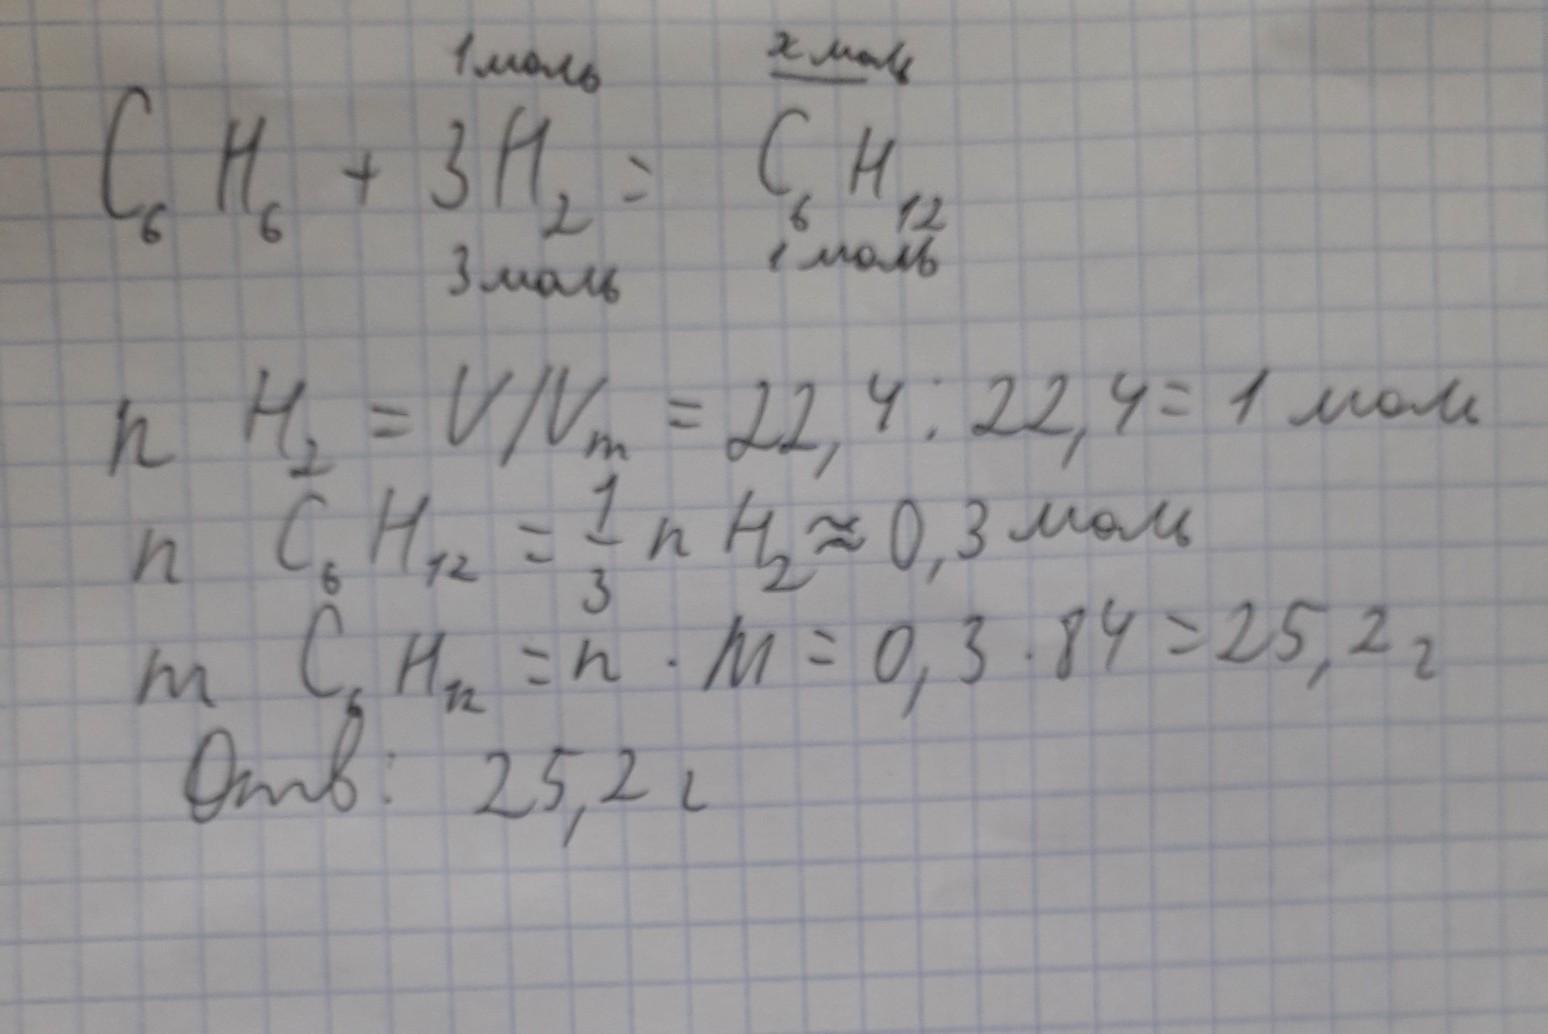 1 моль x моль
C₆H₆ + 3H₂ = C₆H₁₂
3 моль 1 моль
n H₂ = V/Vm = 22,4 : 22,4 = 1 моль
n C₆H₁₂ = 1/3 n H₂ ≈ 0,3 моль
m C₆H₁₂ = n · M = 0,3 · 84 = 25,2 г
Отв: 25,2 г